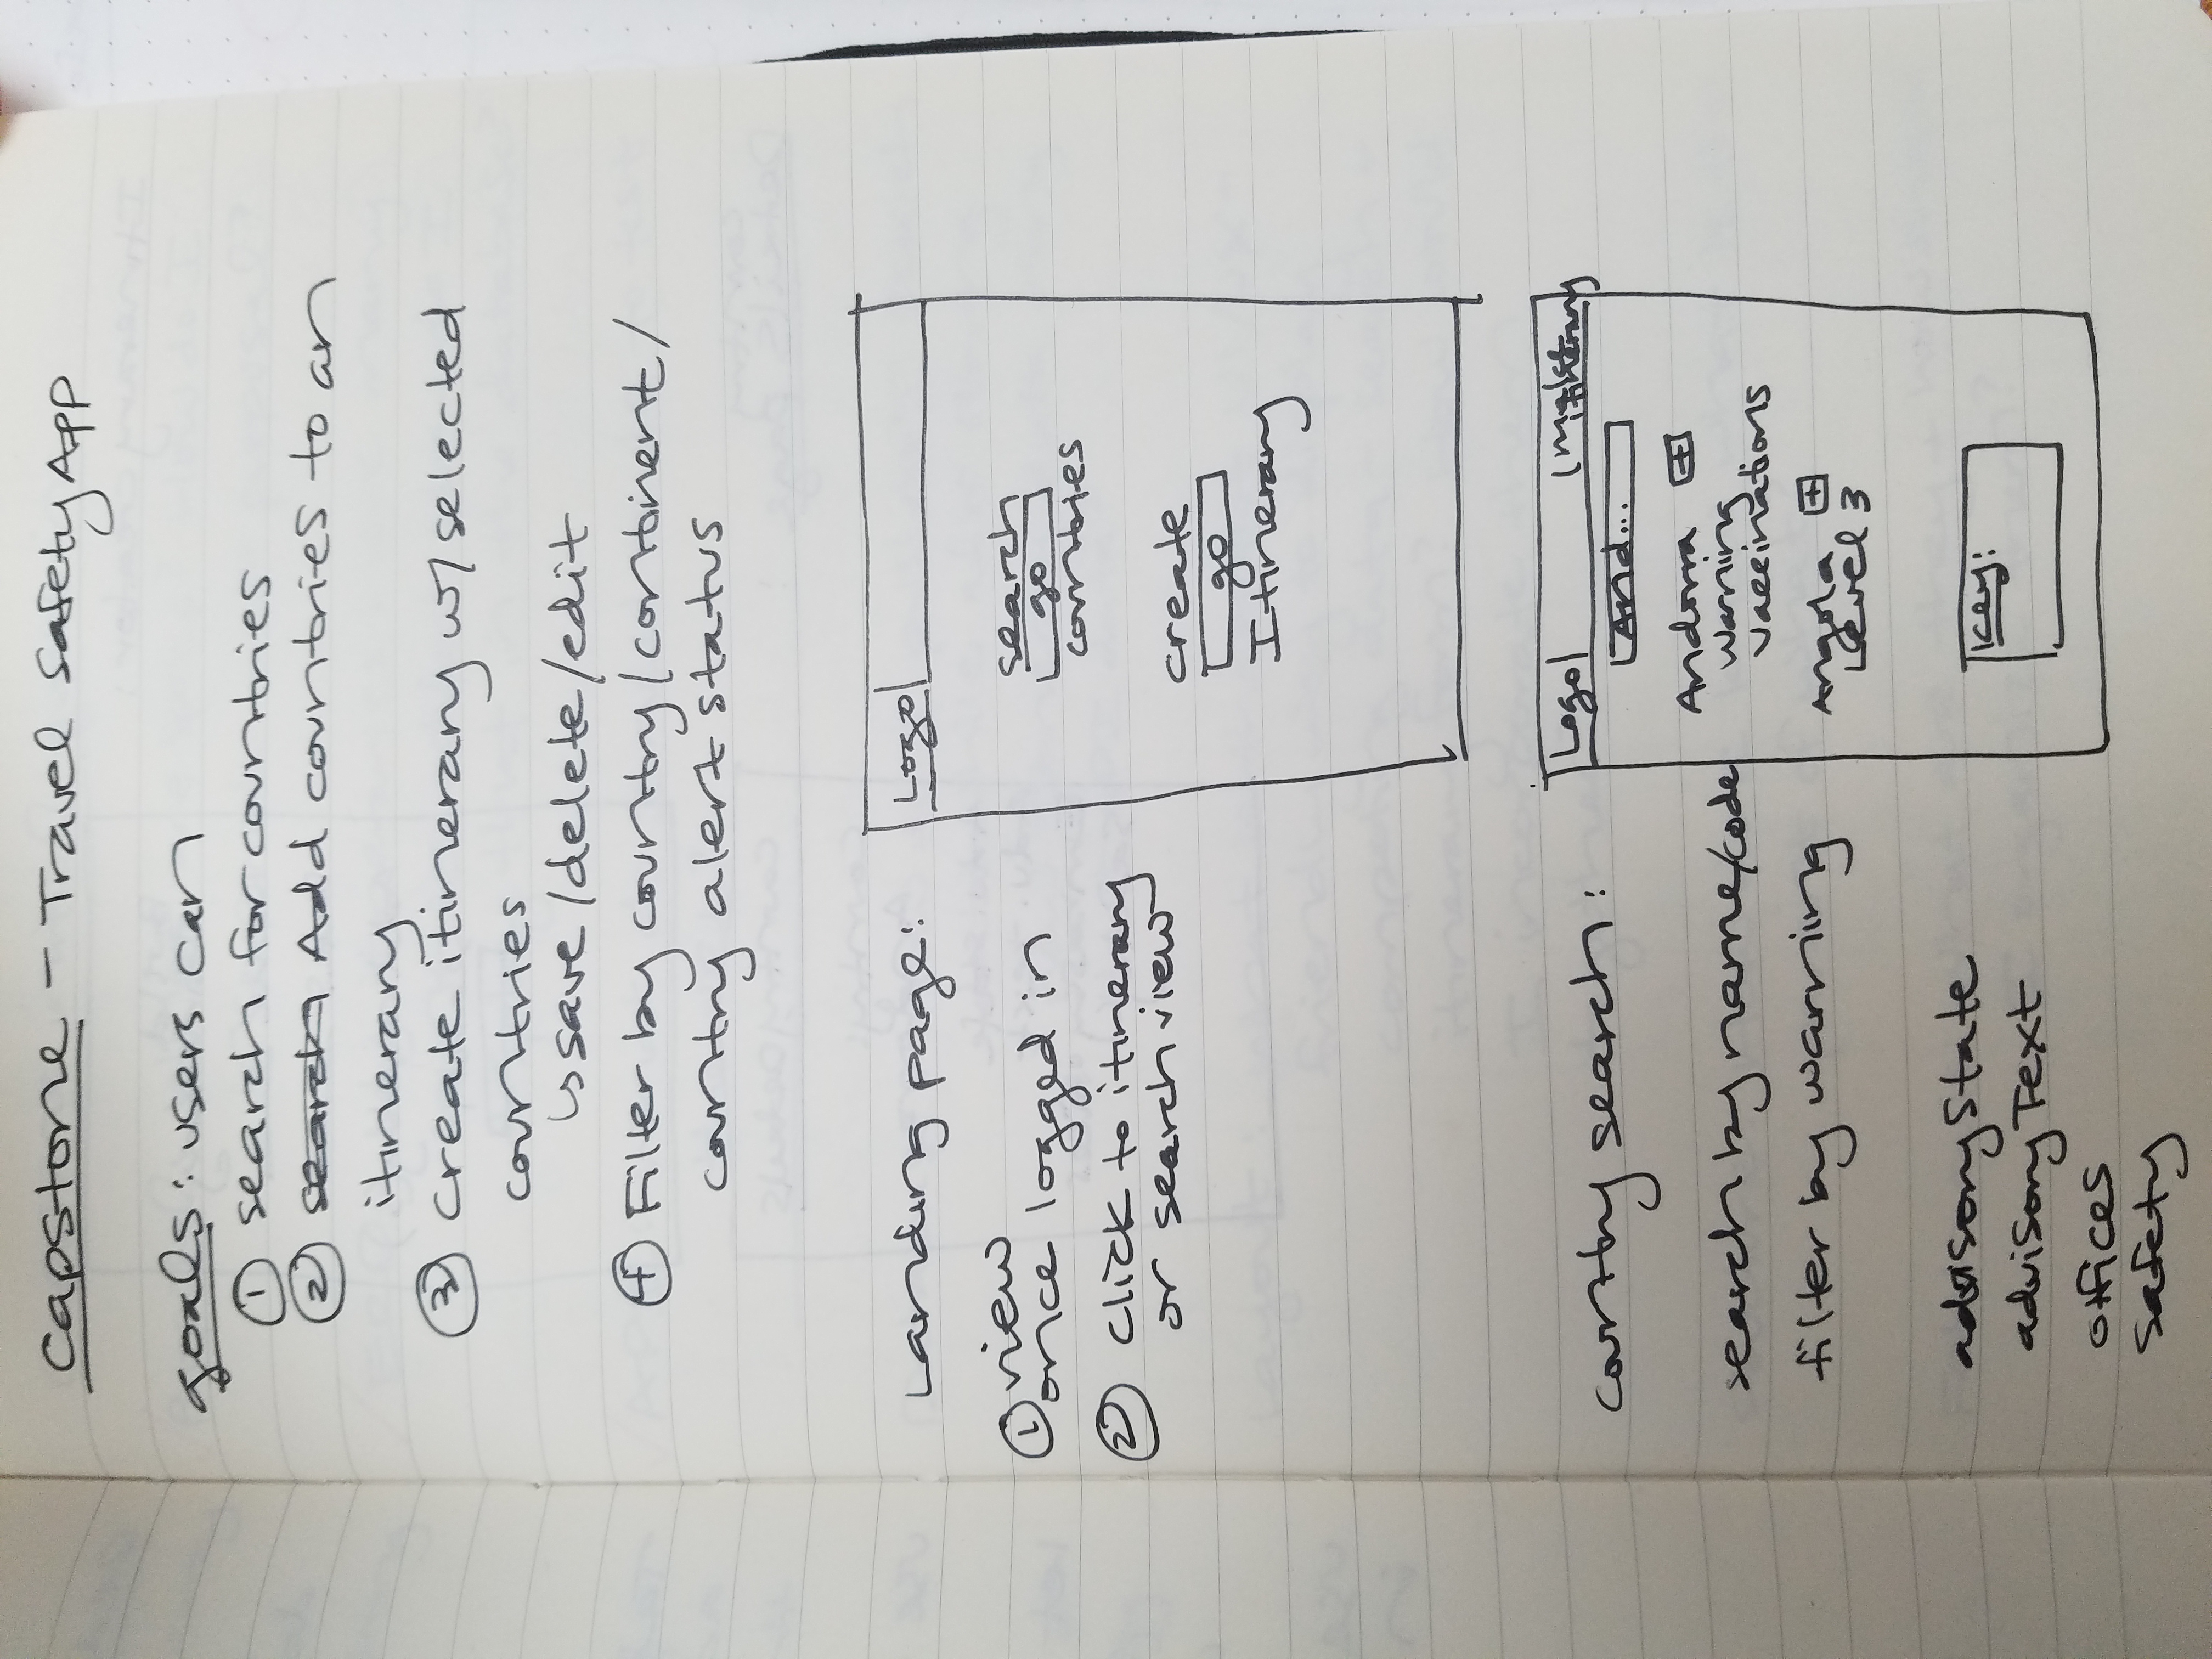 Capstone - Travel Safety App
goals: users can
① search for countries
② search Add countries to an
itinerary
③ create itinerary w/ selected
countries
↳ save/delete/edit
④ Filter by country/continent/
country alert status
Landing page:
① view
once logged in
② click to itinerary
or search view
Logo
search
go
countries
create
go
Itinerary
country search:
search by name/code
filter by warning
advisoryState
advisoryText
offices
safety
Logo
make
itinerary
And...
Andorra +
warning
vaccinations
Angola +
Level 3
Key: